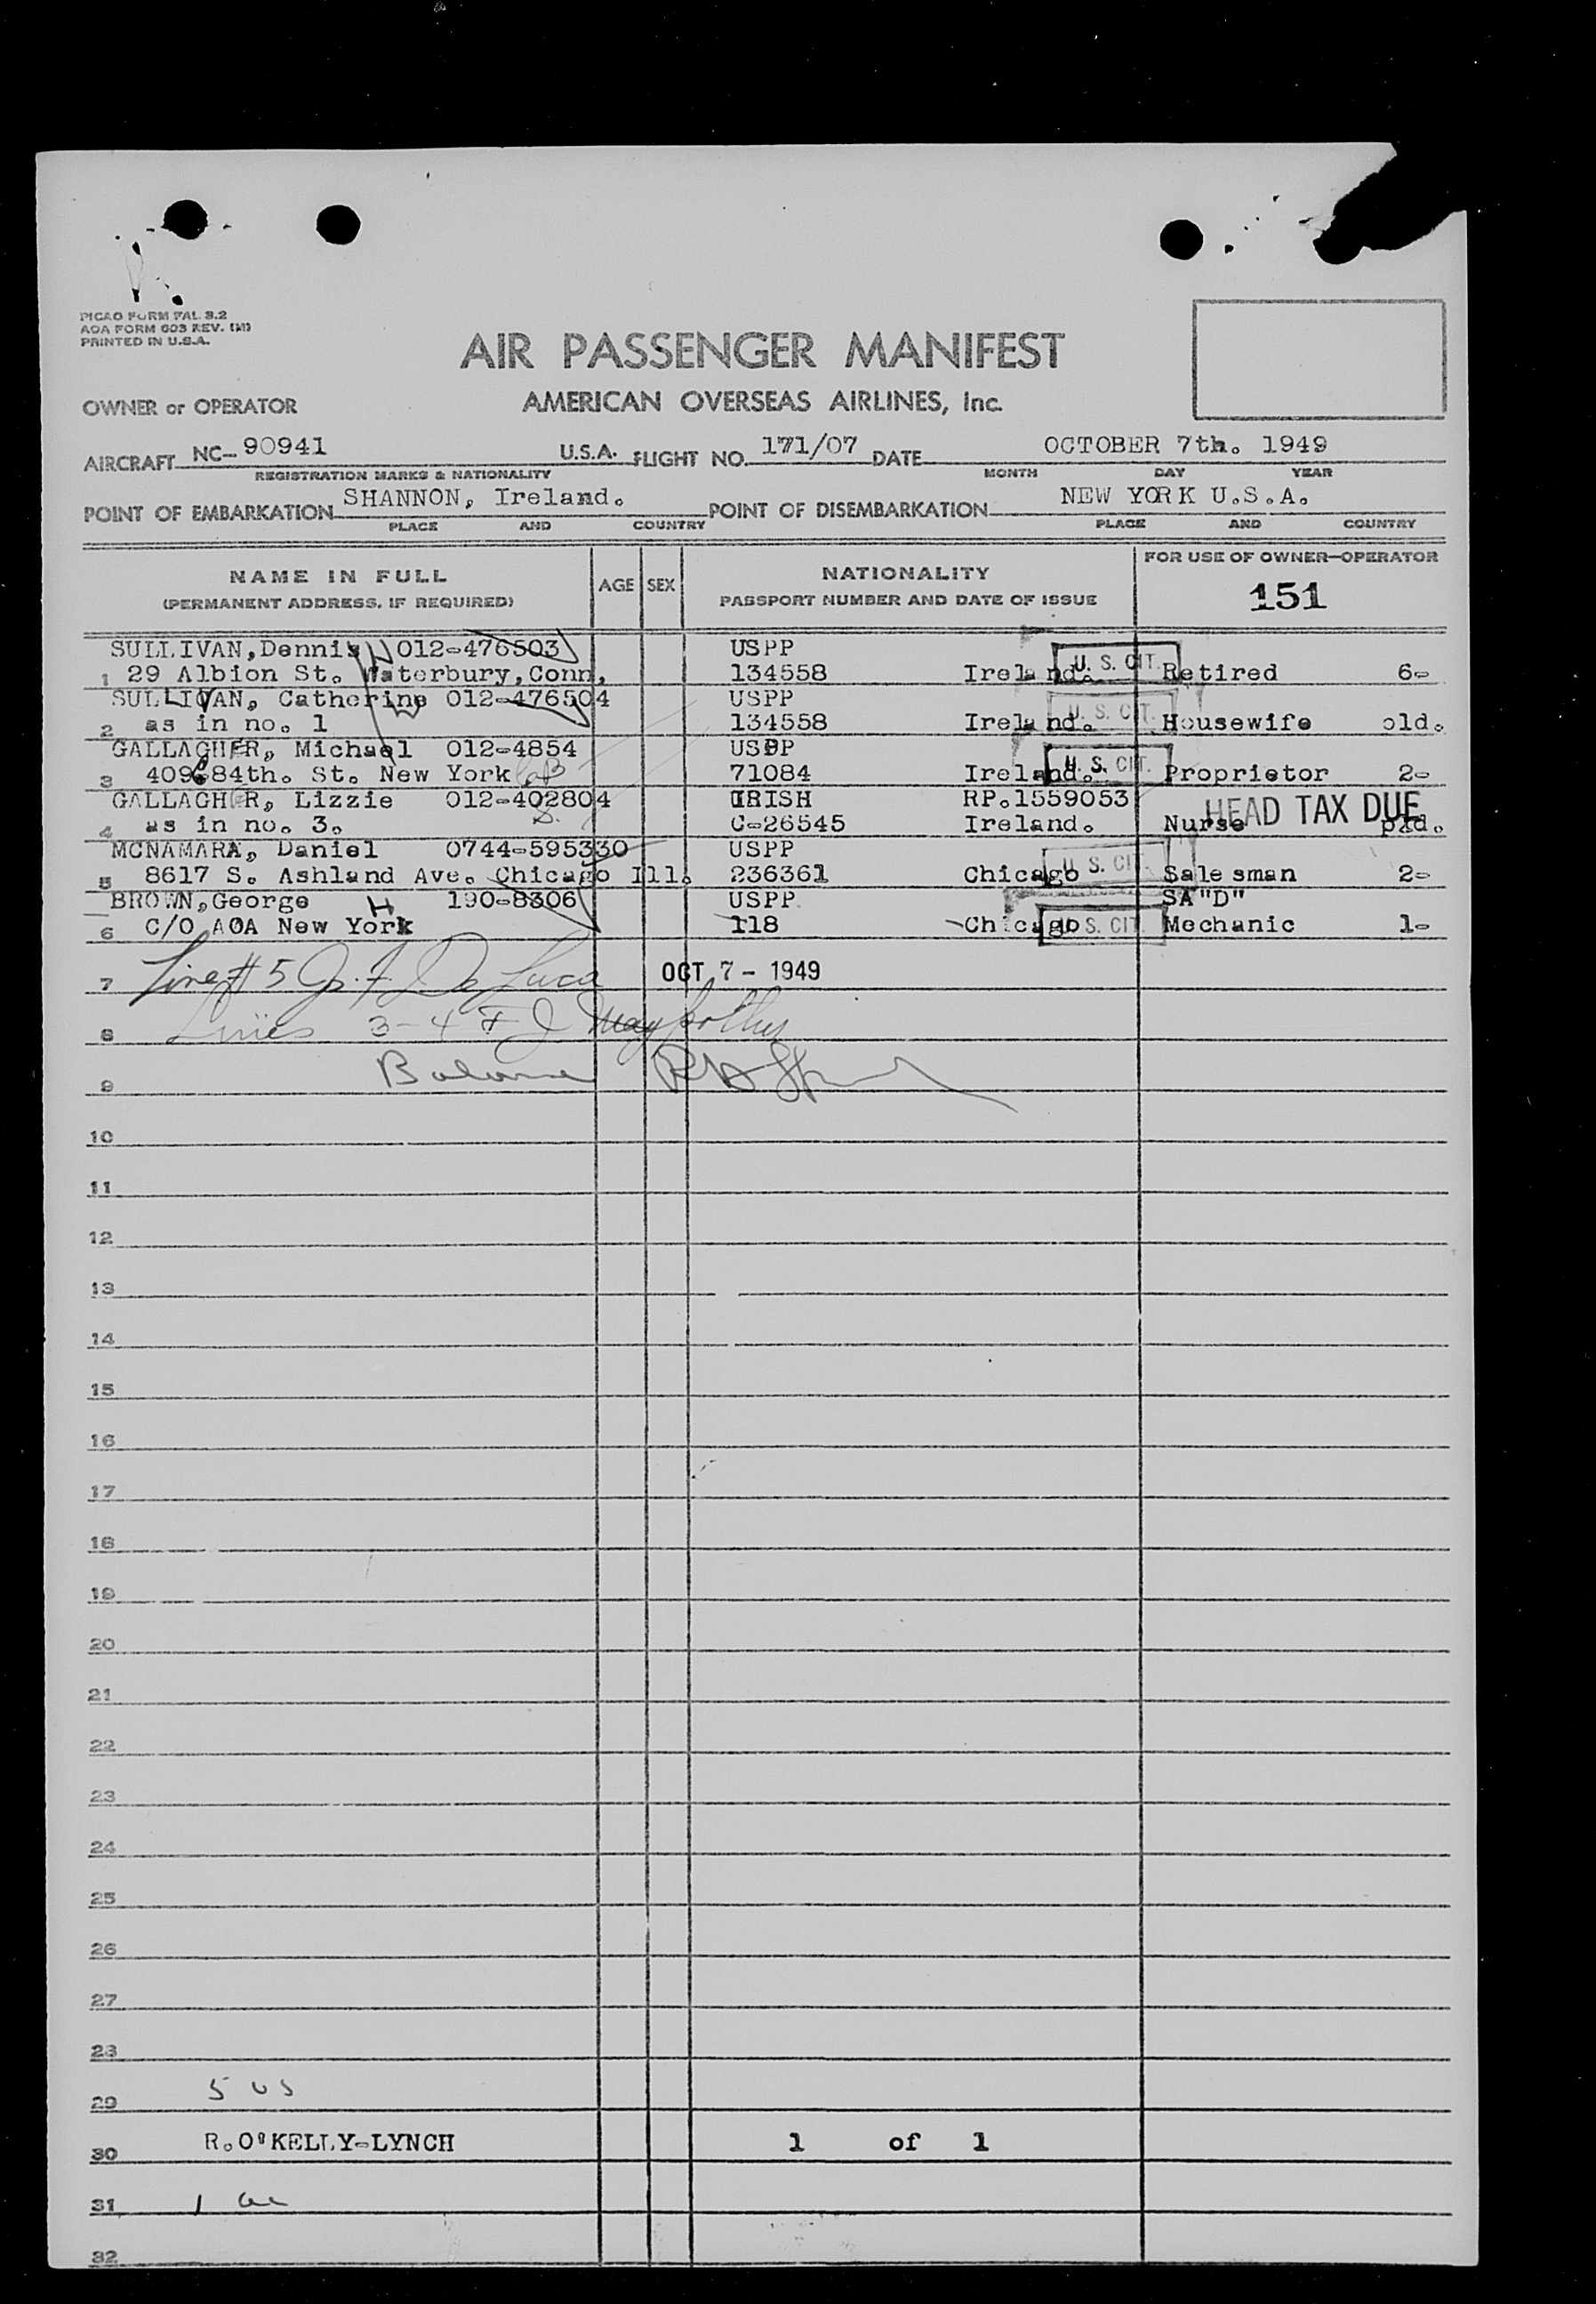 PICAO FORM FAL 3.2
AOA FORM 603 REV. (M)
PRINTED IN U.S.A.
AIR PASSENGER MANIFEST
OWNER or OPERATOR AMERICAN OVERSEAS AIRLINES, Inc.
AIRCRAFT NC-90941 U.S.A. FLIGHT NO. 171/07 DATE OCTOBER 7th. 1949
REGISTRATION MARKS & NATIONALITY MONTH DAY YEAR
POINT OF EMBARKATION SHANNON, Ireland. POINT OF DISEMBARKATION NEW YORK U.S.A.
PLACE AND COUNTRY PLACE AND COUNTRY
NAME IN FULL AGE SEX NATIONALITY FOR USE OF OWNER-OPERATOR
(PERMANENT ADDRESS, IF REQUIRED) PASSPORT NUMBER AND DATE OF ISSUE 151
SULLIVAN,Dennis 012-476503 USPP U. S. CIT.
1 29 Albion St. Waterbury,Conn, 134558 Ireland. Retired 6-
SULLIVAN, Catherine 012-476504 USPP U. S. CIT.
2 as in no. 1 134558 Ireland. Housewife old.
GALLAGHER, Michael 012-4854 USPP U. S. CIT.
3 409 84th. St. New York 71084 Ireland. Proprietor 2-
GALLAGHER, Lizzie 012-402804 IRISH RP.1559053 HEAD TAX DUE
4 as in no. 3. C-26545 Ireland. Nurse pld.
MCNAMARA, Daniel 0744-595330 USPP U. S. CIT.
5 8617 S. Ashland Ave. Chicago Ill. 236361 Chicago Salesman 2-
BROWN,George H 190-8306 USPP SA"D"
6 C/O AOA New York 118 Chicago U. S. CIT. Mechanic 1-
7 Line # 5 J. F. De Luca OCT 7 - 1949
8 Lines 3-4 F J
9 Balance
10
11
12
13
14
15
16
17
18
19
20
21
22
23
24
25
26
27
28
29 5 US
30 R.O'KELLY-LYNCH 1 of 1
31 1
32